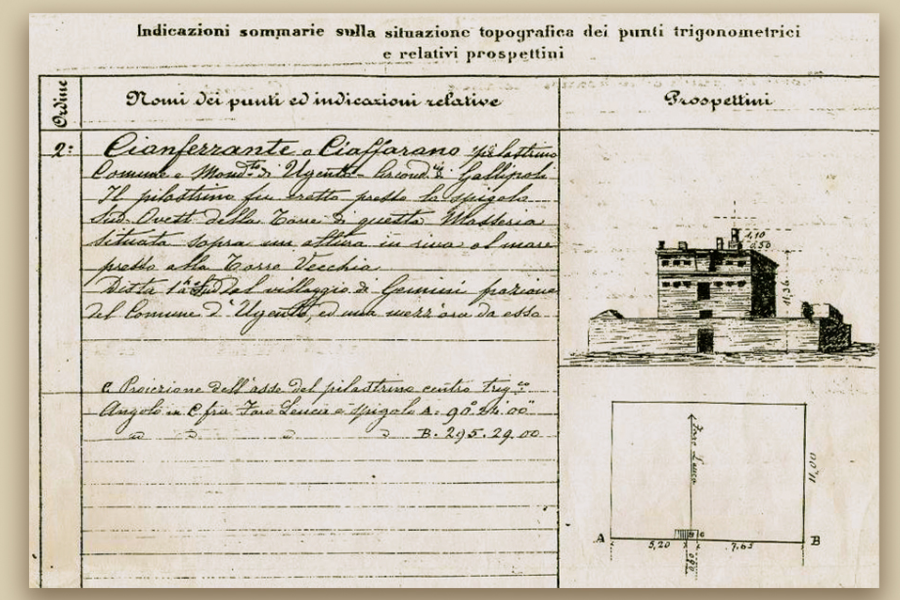 Indicazioni sommarie sulla situazione topografica dei punti trigonometrici
e relativi prospettini
Ordine
Nomi dei punti ed indicazioni relative
Prospettini
2:
Cianferrante o Ciaffarano pilastrino
Comune e Mond.to di Ugento Circond. di Gallipoli
Il pilastrino fu eretto presso lo spigolo
Sud-Ovest della Torre di questa Masseria
situata sopra un altura in riva al mare
presso alla Torre Vecchia
Dista 1 Sud del villaggio di Gemini frazione
del Comune d'Ugento, ed una mezz'ora da esso
C. Proiezione dell'asse del pilastrino centro trig.co
Angolo in C fra Faro Leuca e spigolo A. 90°.24'.00"
B. 295.29.00
2,10
0,50
11,36
Faro Leuca
11,00
A
C
B
5,20
7,65